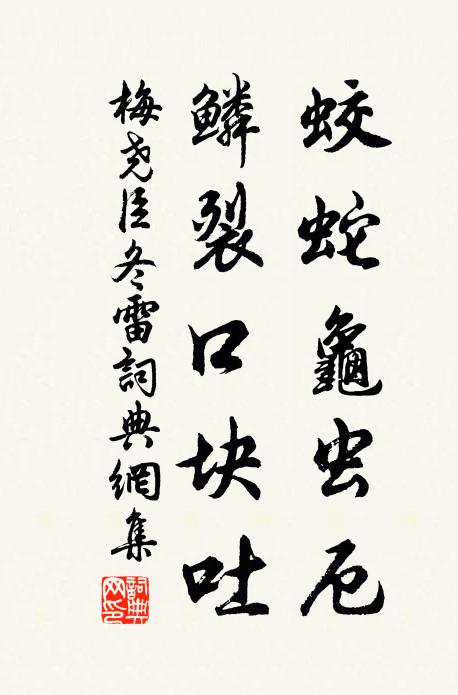 蛟蛇龜虫厄
鱗裂口块吐
梅尧臣冬雷詞典網集
詞典网印